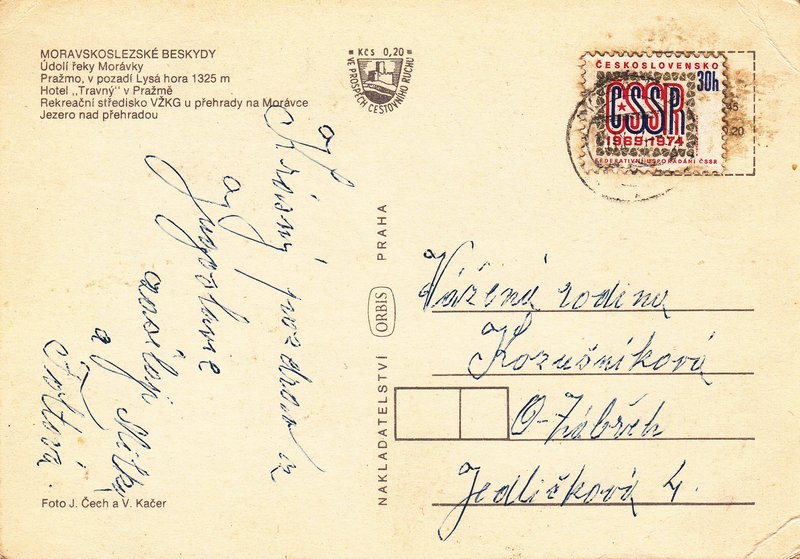 MORAVSKOSLEZSKÉ BESKYDY
Údolí řeky Morávky
Pražmo, v pozadí Lysá hora 1325 m
Hotel „Travný" v Pražmě
Rekreační středisko VŽKG u přehrady na Morávce
Jezero nad přehradou
= Kčs 0,20 =
VE PROSPĚCH CESTOVNÍHO RUCHU
ČESKOSLOVENSKO
30h
ČSSR
1969-1974
FEDERATIVNÍ USPOŘÁDÁNÍ ČSSR
Krásný pozdrav z
Jugoslavie
zasílají
a
NAKLADATELSTVÍ ORBIS PRAHA
Vážená rodina
Kozušníková
O-Zábřeh
Jedličková 4.
Foto J. Čech a V. Kačer